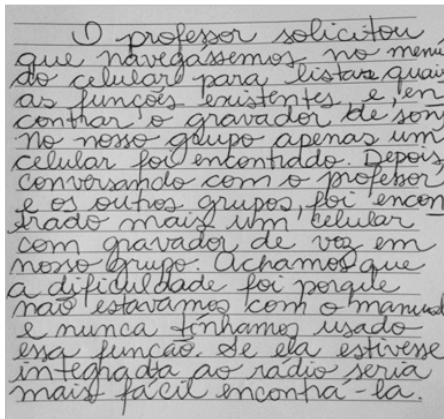 O professor solicitou
que navegássemos no menu
do celular para listar quais
as funções existentes, e, en
contrar o gravador de som
no nosso grupo apenas um
celular foi encontrado. Depois,
conversando com o professor,
e os outros grupos, foi encon
trado mais um celular
com gravador de voz em
nosso grupo. Achamos que
a dificuldade foi porque
não estavamos com o manual
e nunca tínhamos usado
essa função. Se ela estivesse
integrada ao rádio seria
mais fácil encontrá-la.